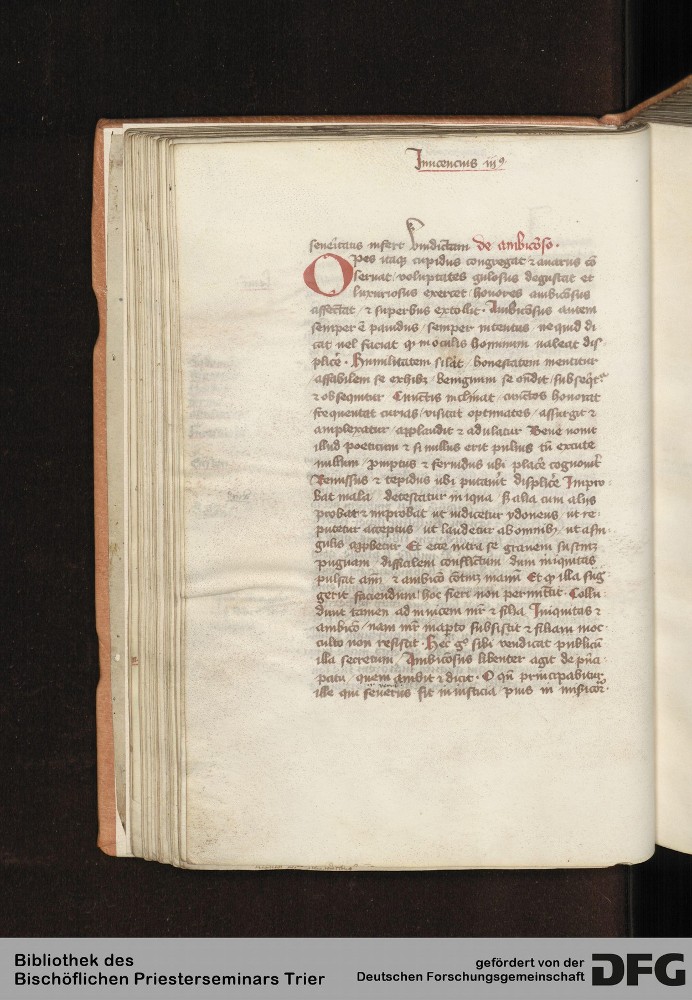 Innicencius iij⁹
seueritatis infert vindictam de ambic̄oso ·
Opes itaq̄ cupidus congregat ⁊ auarus cō
seruat / voluptates gulosus degustat et
luxuriosus exercet / honores ambic̄osus
affectat / ⁊ superbus extollit · Ambic̄osus autem
semper ē pauidus / semper intentus / ne quid di
cat uel faciat qď in oculis hominum ualeat dis-
plicē̄ · humilitatem silāt / honestatem mentitur
affabilem se exhibꝫ / benignum se on̄dit / subseq̄t͛
⁊ obsequitur Cunctis inclinat / cunctos honorat
frequentat curias / uisitat optimates / assurgit ⁊
amplexatur / applaudit ⁊ adulatur Bene nouit
illud poeticum ⁊ si nullus erit puluis tn̄ excute
nullum / promptus ⁊ feruidus ubi placē̄ cognouīt
Remissus ⁊ tepidus ubi putauīt displicē̄ Impro-
bat mala / detestatur iniqua ẞ alia cum alijs
probat ⁊ improbat ut iudicetur ydoneus ut re-
putetur acceptus / ut laudetur ab omnibꝫ / ut a sin-
gulis approbetur Et ecce intra se grauem sustinꝫ
pugnam / difficilem conflictum dum iniquitas
pulsat aīm ⁊ ambic̄o cōtinꝫ manū Et qď illa sug
gerit faciendum / hoc fieri non permittit · Collu-
dunt tamen ad inuicem mr̄ ⁊ filia Iniquitas ⁊
ambic̄o / nam mr̄ in apto subsistit ⁊ filiam in oc-
culto non resistit · hec gͦ sibi uendicat publicū
illa secretum / Ambic̄osus libenter agit de pn̄ci
patu / quem ambit ⁊ dicit · O qn̄ principabitur
ille qui seuerus sit in iusticia / pius in mīscor͛
Bibliothek des
Bischöflichen Priesterseminars Trier
gefördert von der
Deutschen Forschungsgemeinschaft
DFG